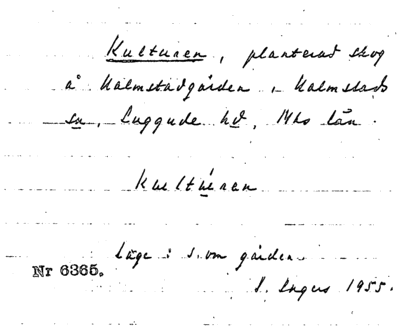 Kulturen, planterad skog
å Halmstadgården, Halmstads
sn, Luggude hd, Mhs län.
Kultúren
Läge: s. om gården.
Nr 6365.
S. Ingers 1955.